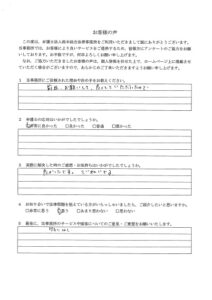 お客様の声
この度は、弁護士法人鈴木総合法律事務所をご利用いただきまして誠にありがとうございます。
当事務所では、お客様により良いサービスをご提供するため、皆様方にアンケートのご協力をお願い
しております。お手数ですが、何卒ご協力いただきますようお願い申し上げます。
なお、ご協力いただきましたお客様の声は、個人情報を伏せた上で、ホームページ上に掲載させ
ていただく場合がございますので、あらかじめご了承いただきますようお願い申し上げます。
1 当事務所にご依頼された理由や決め手をお教えください。
前回、お願いして、良くしていただいたので
2 弁護士の応対はいかがでしたでしょうか。
□非常に良かった □良かった □普通 □悪かった
3 実際に解決した時のご感想・お気持ちはいかがでしたでしょうか。
良かったです。
4 お知り合いで法律問題を抱えている方がいらっしゃいましたら、ご紹介したいと思いますか。
□非常に思う □思う □あまり思わない □思わない
5 最後に、法律事務所のサービスや接客についてのご意見・ご要望をお願いいたします。
特になし